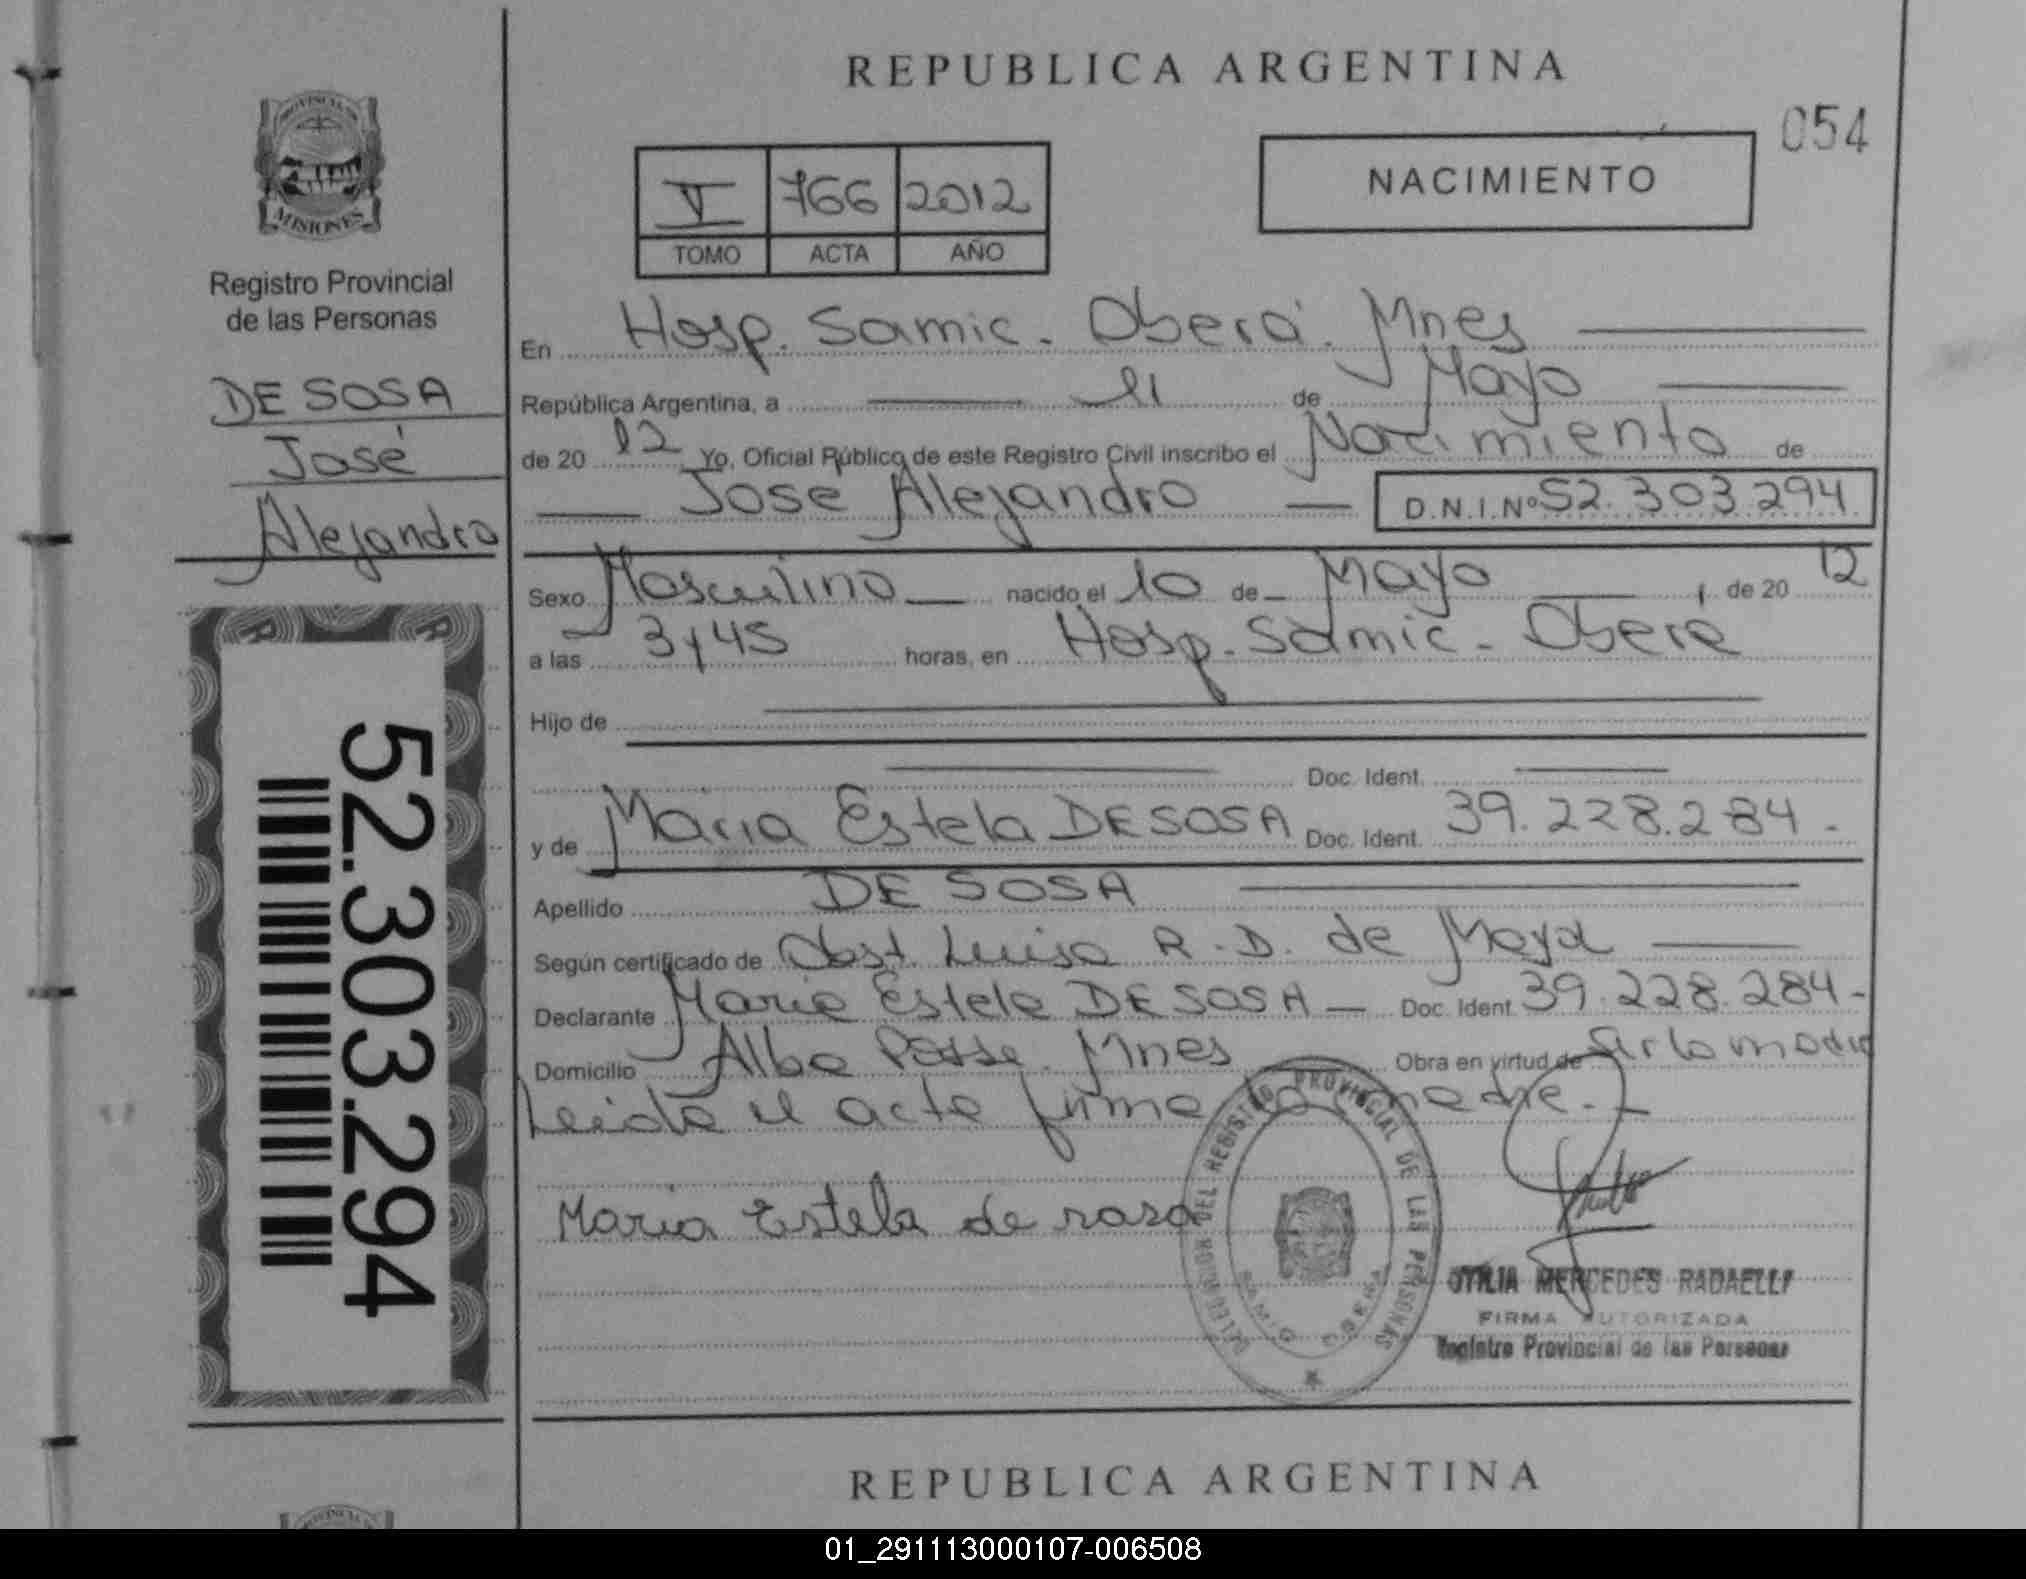 REPUBLICA ARGENTINA
054
PROVINCIA DE
MISIONES
Registro Provincial
de las Personas
DE SOSA
José
Alejandro
52.303.294
V 766 2012
TOMO ACTA AÑO
NACIMIENTO
En Hosp. Samic. Oberá. Mnes
República Argentina, a 11 de Mayo
de 20 12 Yo, Oficial Público de este Registro Civil inscribo el Nacimiento de
José Alejandro D.N.I.Nº 52.303.294
Sexo Masculino nacido el 10 de Mayo de 20 12
a las 3 y 45 horas, en Hosp. Samic. Oberá
Hijo de
Doc. Ident.
y de Maria Estela DE SOSA Doc. Ident. 39.228.284.
Apellido DE SOSA
Según certificado de Obst. Luisa R. D. de Moya
Declarante Maria Estela DE SOSA Doc. Ident. 39.228.284
Domicilio Alba Posse. Mnes Obra en virtud de
Leida el acta firma la madre.
Maria Estela de sosa
DEL REGISTRO PROVINCIAL DE LAS PERSONAS
SAMIC OBERA
OTILIA MERCEDES RADAELLI
FIRMA AUTORIZADA
Registro Provincial de las Personas
REPUBLICA ARGENTINA
01_291113000107-006508